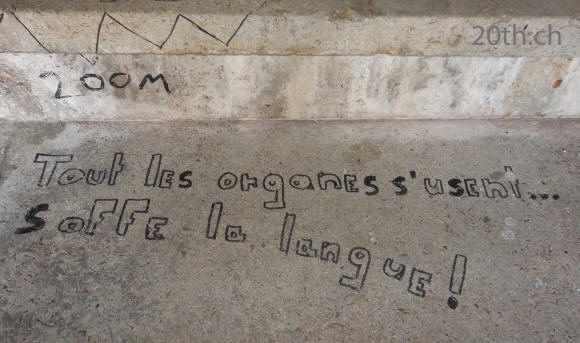 20th.ch
ZOOM
Tout les organes s'usent...
Soffe la langue!